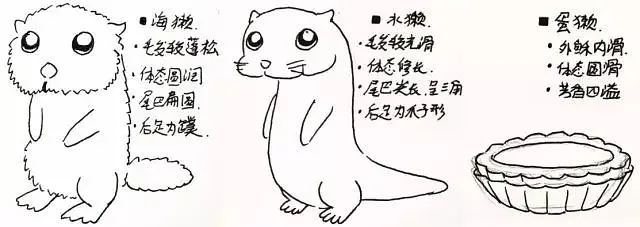 ■ 海獭.
· 毛发较蓬松
· 体态圆润
· 尾巴扁圆.
· 后足为蹼.
■ 水獭.
· 毛发较光滑
· 体态修长.
· 尾巴尖长.呈三角
· 后足为爪子形
■ 蛋獭.
· 外酥内滑
· 体态圆滑
· 芳香四溢